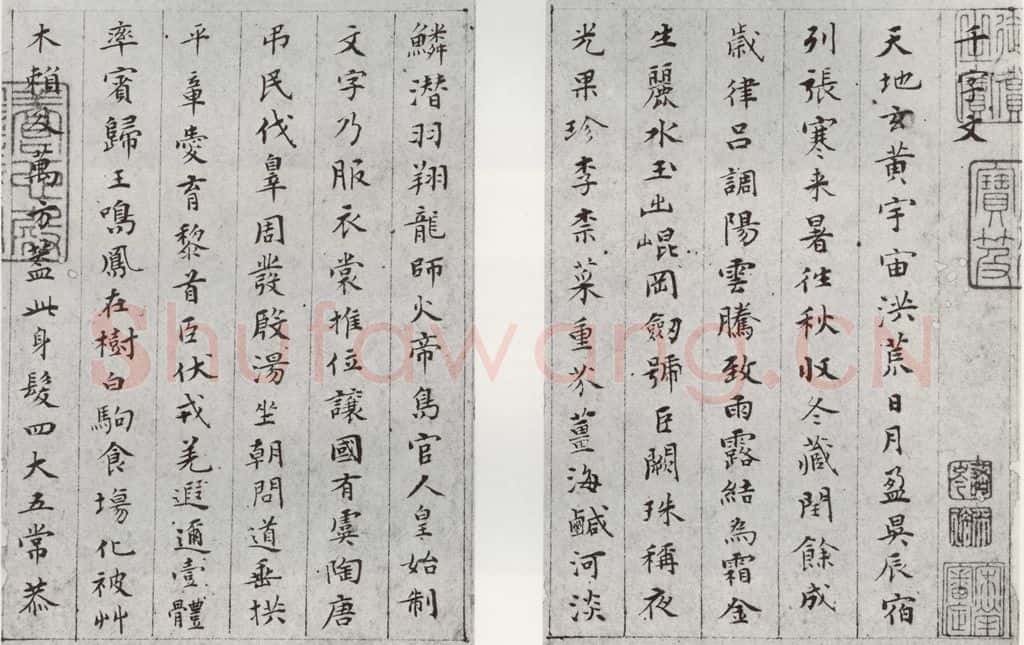 千字文
天地玄黄宇宙洪荒日月盈昃辰宿
列張寒来暑往秋収冬藏閏餘成
歳律吕調陽雲騰致雨露結為霜金
生麗水玉出崐岡劔號巨闕珠稱夜
光果珍李柰菜重芥薑海鹹河淡
鱗潜羽翔龍師火帝鳥官人皇始制
文字乃服衣裳推位讓國有虞陶唐
吊民伐辠周發殷湯坐朝問道垂拱
平章愛育黎首臣伏戎羌遐邇壹體
率賓歸王鳴鳳在樹白駒食場化被艸
木賴及萬方蓋此身髮四大五常恭
Shufawang.CN